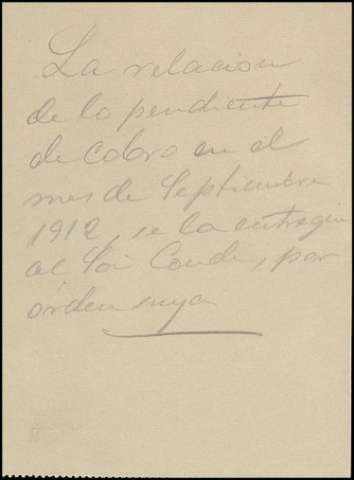 La relacion
de lo pendiente
de cobro en el
mes de Septiembre
1912, se la entregue
al Sor Conde, por
orden suya